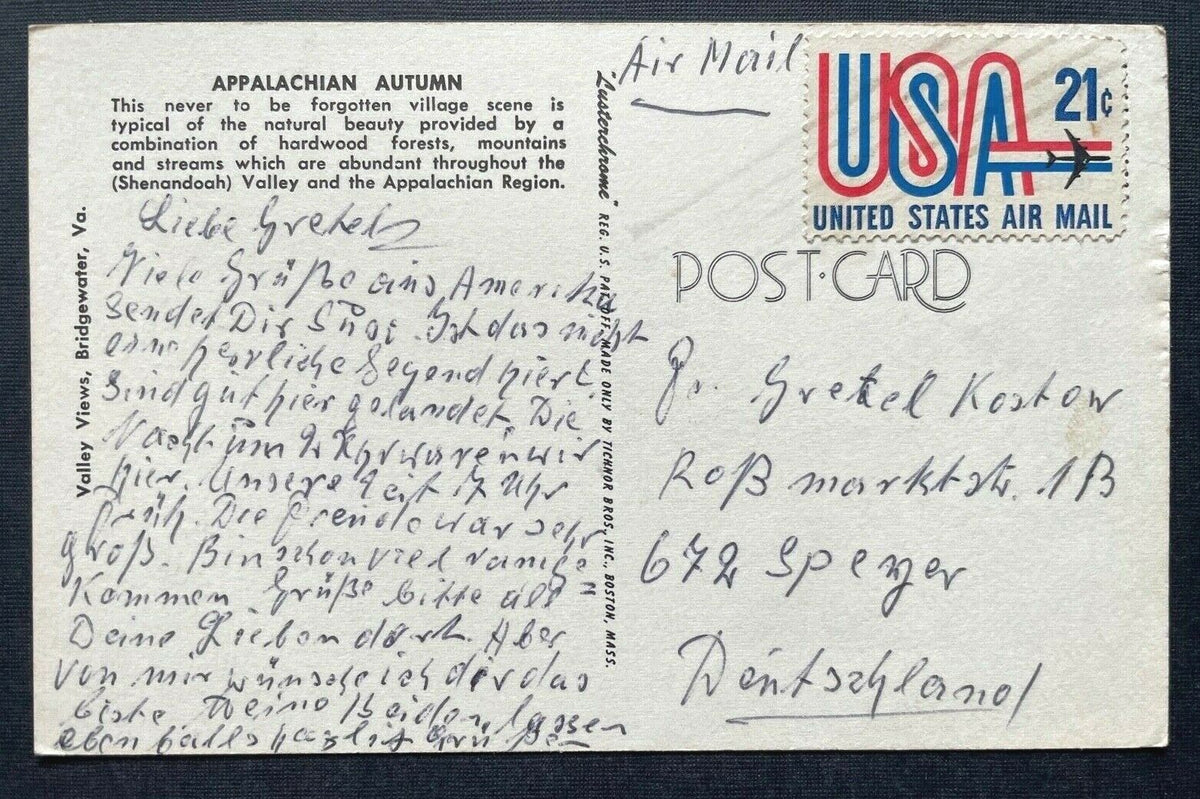 APPALACHIAN AUTUMN
This never to be forgotten village scene is
typical of the natural beauty provided by a
combination of hardwood forests, mountains
and streams which are abundant throughout the
(Shenandoah) Valley and the Appalachian Region.
Valley Views, Bridgewater, Va.
Liebe Gretel
Viele Grüße aus Amerika
sendet Dir Susi. Ist das nicht
eine herrliche Gegend hier?
Sind gut hier gelandet. Die
Nacht um 2 Uhr waren wir
hier. Unsere Zeit 7 Uhr
früh. Die Freude war sehr
groß. Bin schon viel
kommen Grüße bitte all
Deine Lieben dort. Aber
von mir wünsche ich dir das
beste Meine Beiden lassen
ebenfalls herzlich Grüßen
"Lusterchrome" REG. U.S. PAT. OFF. MADE ONLY BY TICHNOR BROS., INC., BOSTON, MASS.
Air Mail
USA 21¢
UNITED STATES AIR MAIL
POST·CARD
Fr. Gretel Kostow
Roßmarktstr. 1B
672 Speyer
Deutschland